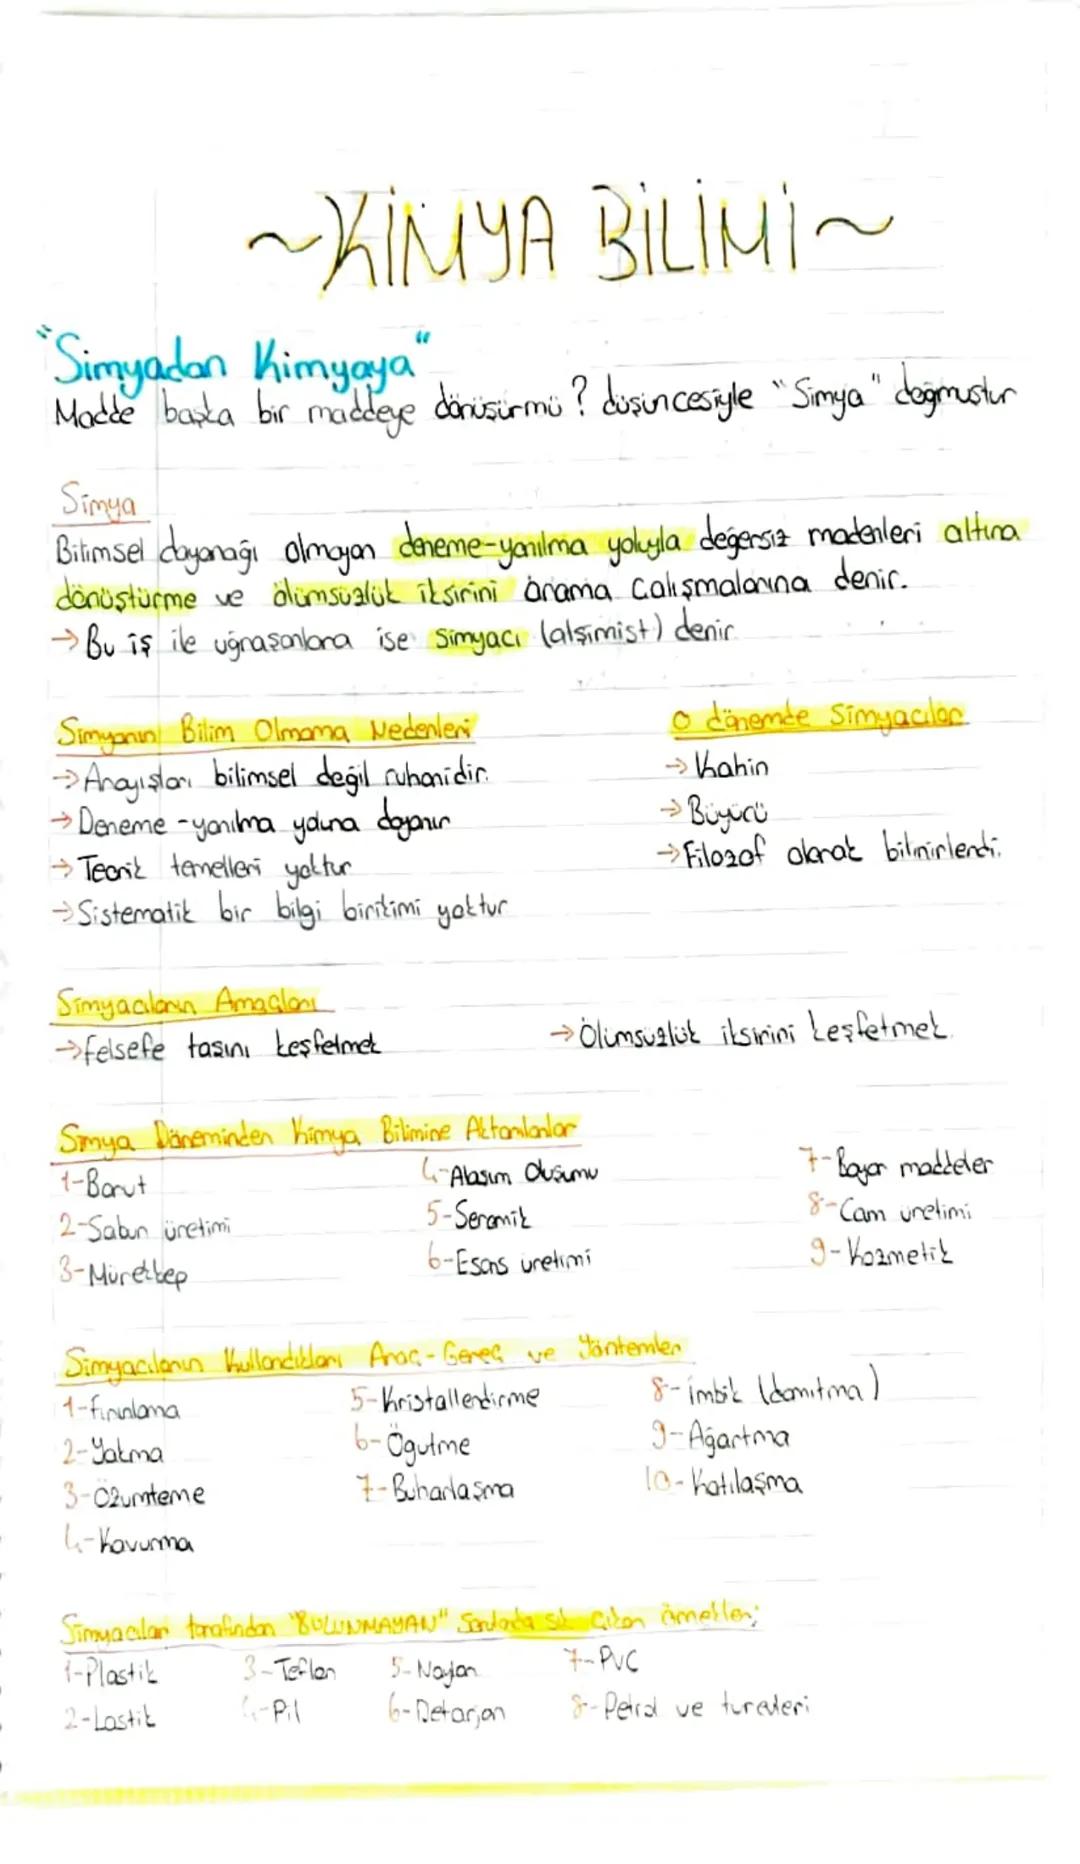 ~KİMYA BİLİMİ~
"Simyadan Kimyaya"
Madde başka bir maddeye dönüşürmü? düşüncesiyle "Simya" doğmuştur
Simya
Bilimsel dayanağı olmayan deneme-yanılma yoluyla değersiz madenleri altına
dönüştürme ve ölümsüzlük iksirini arama çalışmalarına denir.
→Bu iş ile uğraşanlara ise Simyacı (alşimist) denir
Simyanın Bilim Olmama Nedenleri
→Arayışları bilimsel değil ruhanidir.
→Deneme-yanılma yoluna dayanır
→Teorik temelleri yoktur
→Sistematik bir bilgi birikimi yoktur
O dönemde Simyacılar
→Kahin
→Büyücü
→Filozof olarak bilinirlerdi.
Simyacıların Amaçları
→felsefe taşını keşfetmek
→Ölümsüzlük iksirini keşfetmek.
Simya Döneminden Kimya Bilimine Aktarılanlar
1-Barut
2-Sabun üretimi
3-Mürekkep
4-Alaşım Oluşumu
5-Seramik
6-Esans üretimi
7-Boyar maddeler
8-Cam üretimi
9-Kozmetik
Simyacıların Kullandıkları Araç-Gereç ve Yöntemler
1-fırınlama
2-Yakma
3-Özümleme
4-Kavurma
5-Kristallendirme
6-Öğütme
7-Buharlaşma
8-imbik (damıtma)
9-Ağartma
10-Katılaşma
Simyacılar tarafından "BULUNMAYAN" Sorularda sık Çıkan örnekler;
1-Plastik
2-Lastik
3-Teflon
4-Pil
5-Naylon
6-Deterjan
7-PVC
8-Petrol ve türevleri